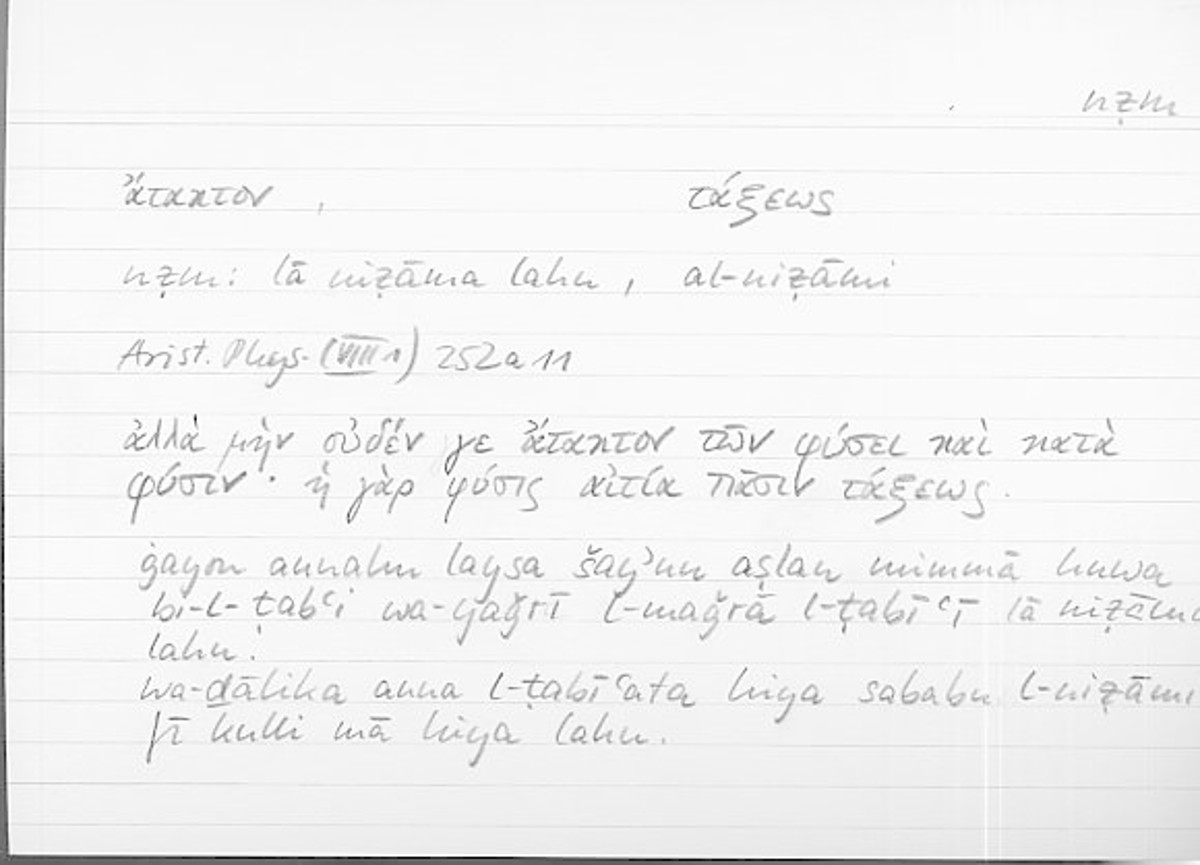 nẓm
ἄτακτον , τάξεως
nẓm: lā niẓāma lahu, al-niẓāmi
Arist. Phys. (VIII 1) 252a11
ἀλλὰ μὴν οὐδέν γε ἄτακτον τῶν φύσει καὶ κατὰ
φύσιν· ἡ γὰρ φύσις αἰτία πᾶσιν τάξεως.
ġayra annahu laysa šayʾun aṣlan mimmā huwa
bi-l-ṭabʿi wa-yaǧrī l-maǧrā l-ṭabīʿī lā niẓāma
lahu.
wa-ḏālika anna l-ṭabīʿata hiya sababu l-niẓāmi
fī kulli mā hiya lahu.